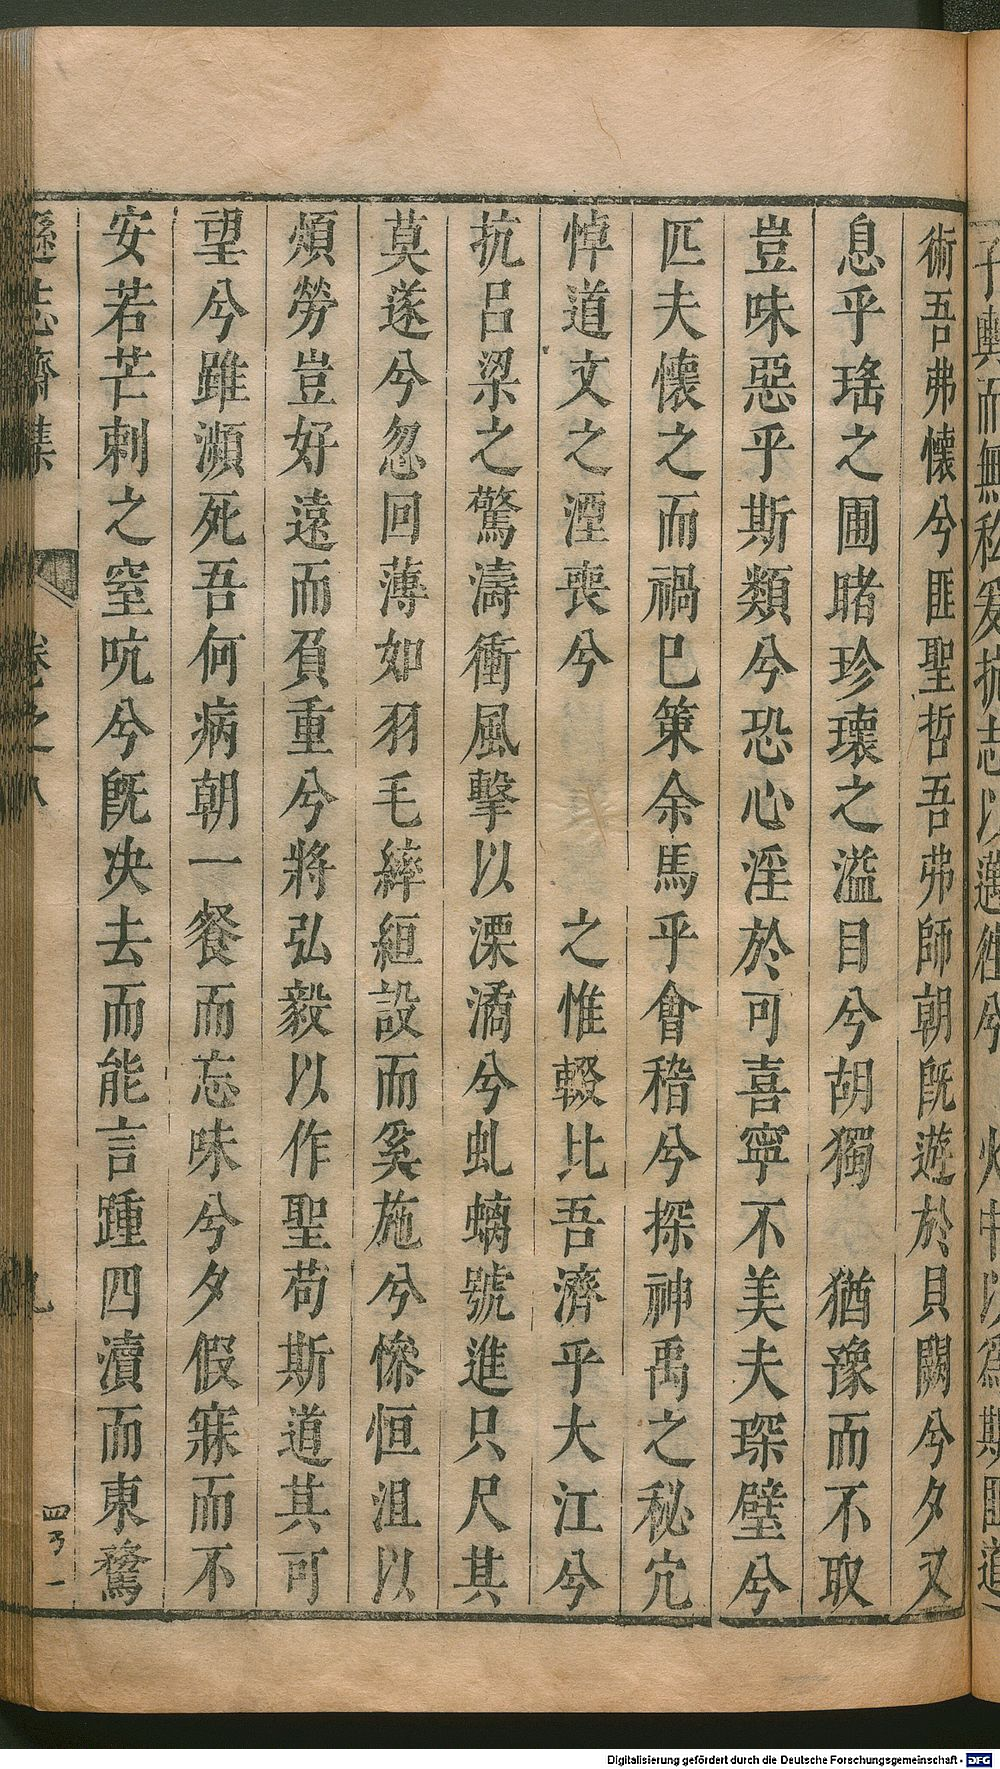 術吾弗懷兮匪聖哲吾弗師朝旣遊於貝闕兮夕又
息乎瑤之圃睹珍瓌之溢目兮胡獨　猶豫而不取
豈味惡乎斯類兮恐心淫於可喜寧不美夫琛璧兮
匹夫懷之而禍已策余馬乎會稽兮探神禹之秘穴
悼道文之湮喪兮　　　之惟輟比吾濟乎大江兮
抗呂梁之驚濤衝風擊以溧潏兮虬螭號進只尺其
莫遂兮忽回薄如羽毛縴絙設而奚施兮慘恒沮以
煩勞豈好遠而負重兮將弘毅以作聖苟斯道其可
望兮雖瀕死吾何病朝一餐而忘味兮夕假寐而不
安若芒刺之窒吭兮旣决去而能言踵四瀆而東騖
遜志齋集　卷之八　九
四ノ一
Digitalisierung gefördert durch die Deutsche Forschungsgemeinschaft - DFG